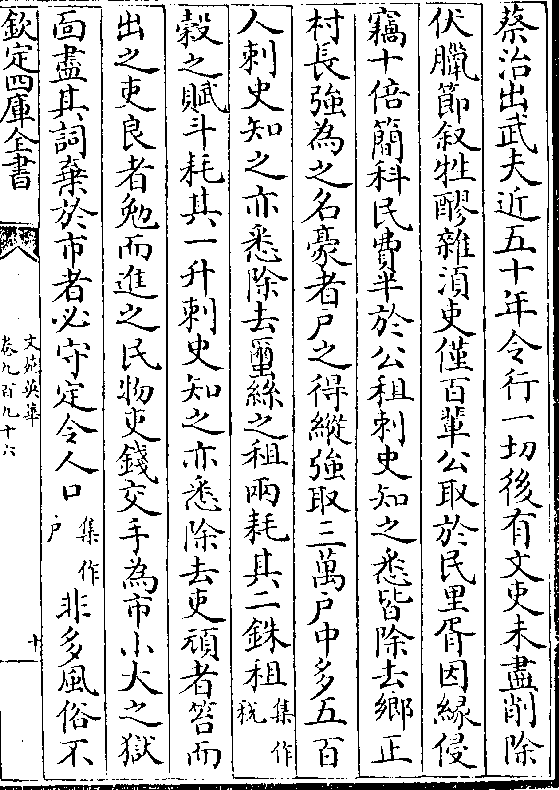 蔡治出武夫近五十年令行一切後有文吏未盡削除
伏臘節叙牲醪雜湏吏僅百輩公取於民里胥因緣侵
竊十倍簡科民費半於公租刺史知之悉皆除去鄉正
村長強為之名豪者尸之得縱強取三萬戶中多五百
人刺史知之亦悉除去蠒絲之租兩耗其二銖租集作稅
穀之賦斗耗其一升刺史知之亦悉除去吏頑者笞而
出之吏良者勉而進之民物吏錢交手為市小大之獄
面盡其詞棄於市者必守定令人口集作戶非多風俗不
欽定四庫全書
文苑英華
卷九百九十六
十